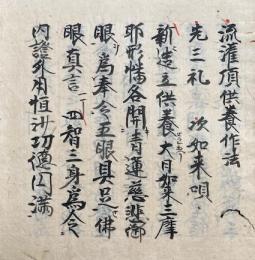 流灌頂供養作法
先三礼 次如来唄
新造立供養大日如来三摩
耶形幡各開青蓮慈悲御
眼為奉令五眼具足佛
眼真言 四智三身為令
内證外用恒沙功徳円満